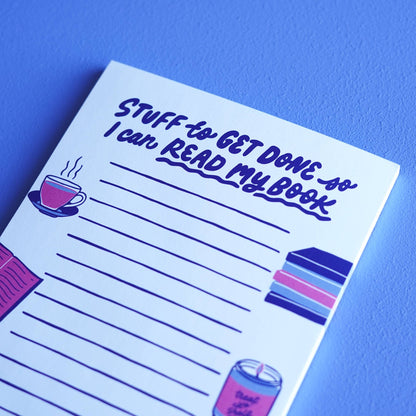 STUFF to GET DONE so
I can READ MY BOOK